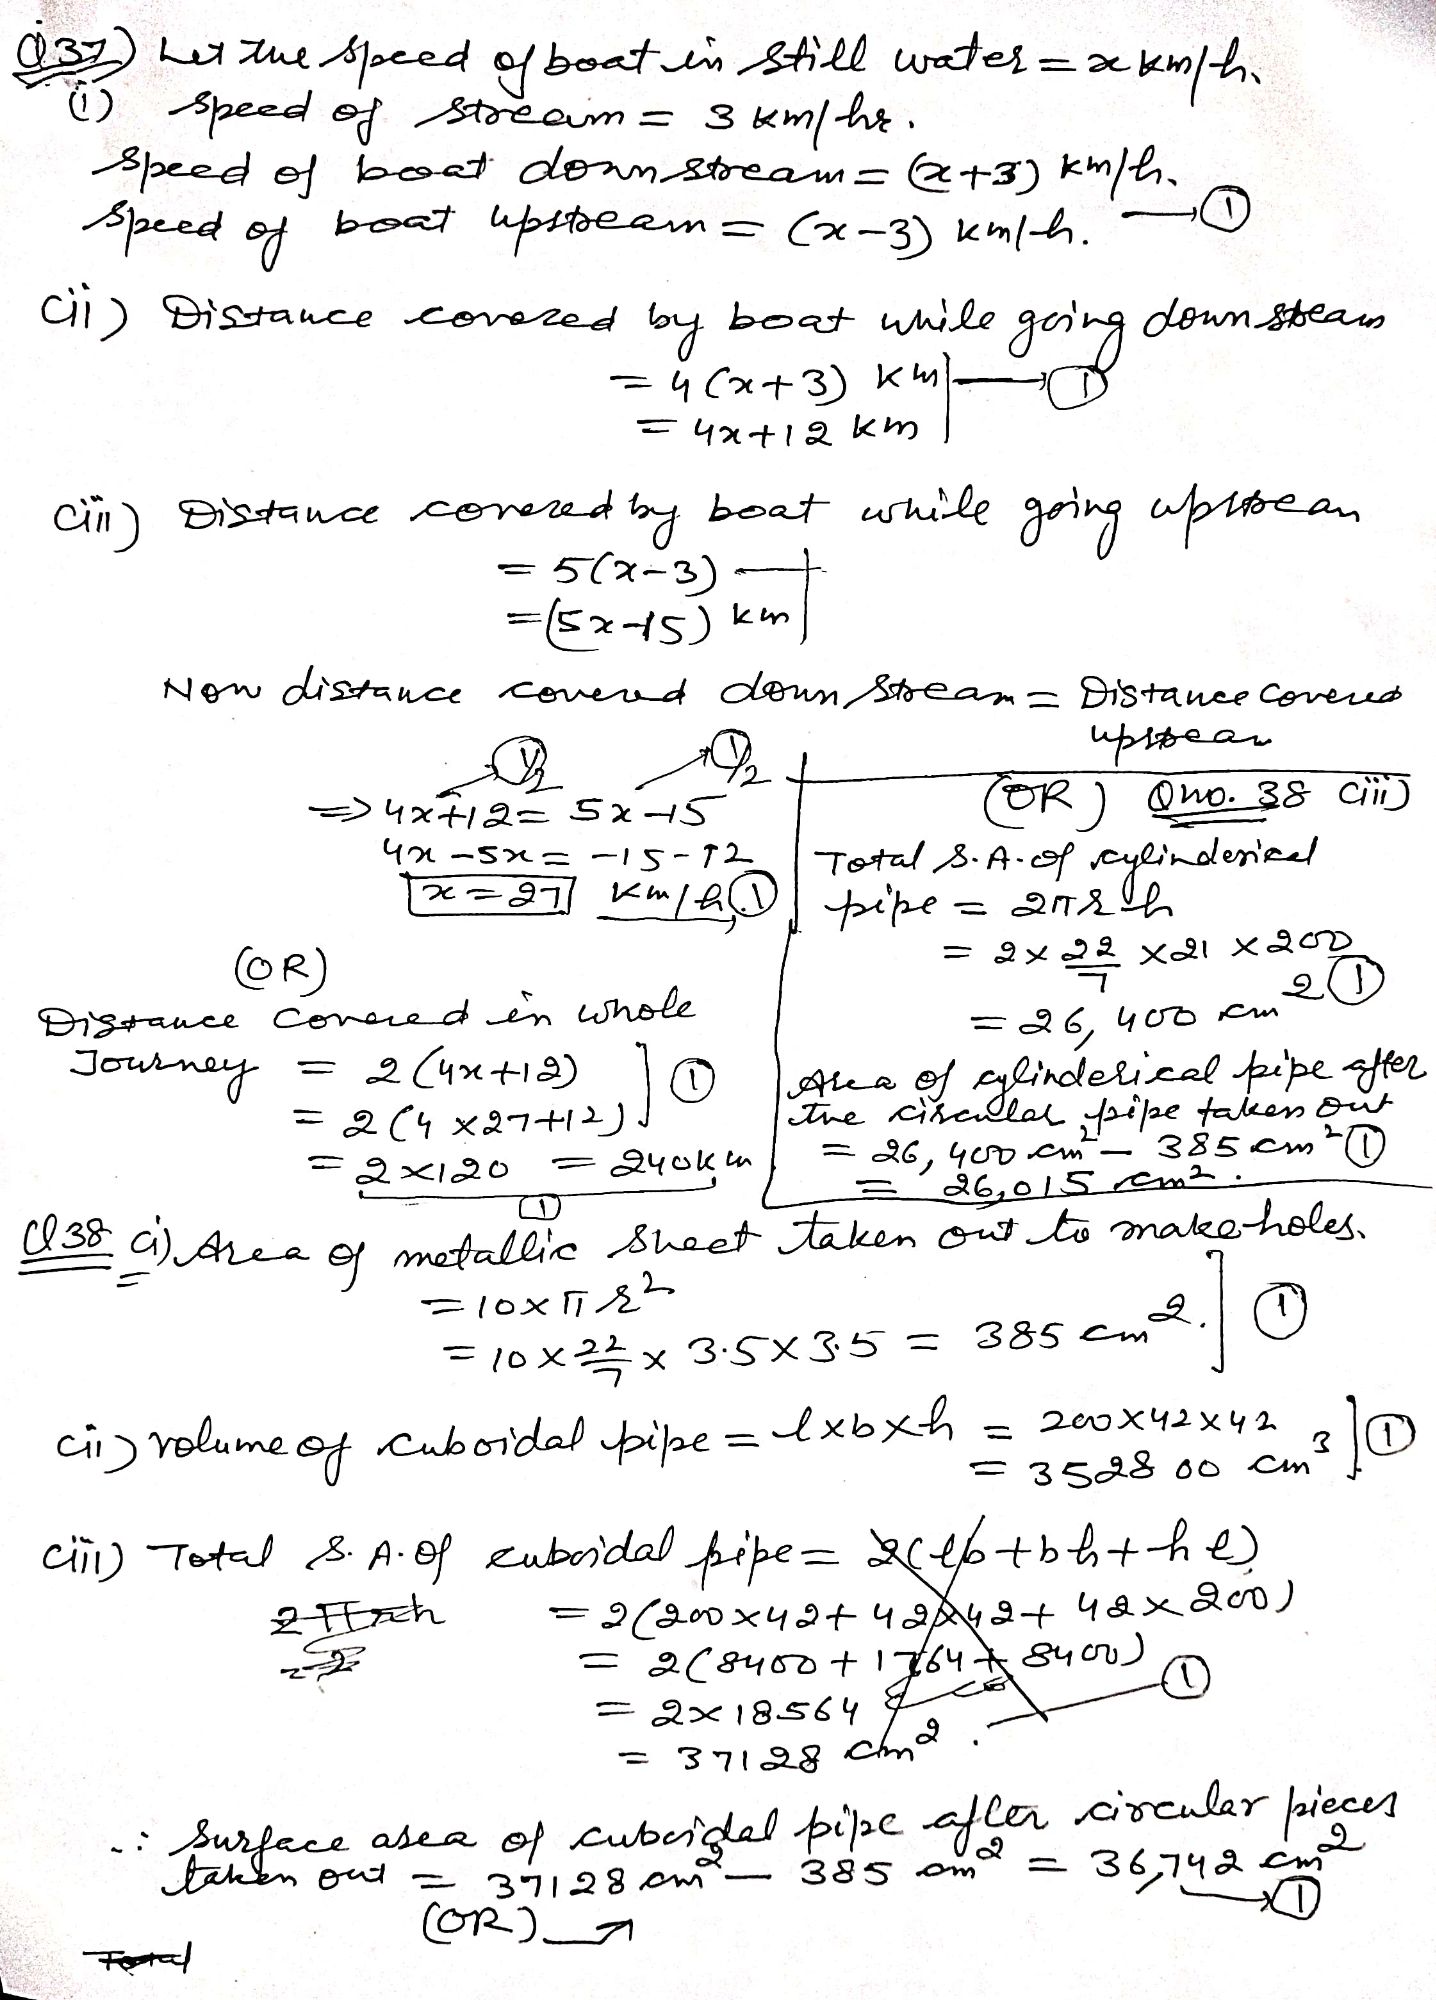 Q37) Let the speed of boat in still water = x km/h.
(i) speed of stream = 3 km/hr.
Speed of boat downstream = (x+3) km/h.
Speed of boat upstream = (x-3) km/h. → ①
(ii) Distance covered by boat while going downstream
= 4(x+3) km → ①
= 4x+12 km
(iii) Distance covered by boat while going upstream
= 5(x-3)
= (5x-15) km
Now distance covered downstream = Distance covered
upstream
1/2 1/2
⇒ 4x+12 = 5x-15
4x-5x = -15-12
x = 27 km/h ①
(OR)
Distance covered in whole
Journey = 2(4x+12)
= 2(4×27+12) ①
= 2×120 = 240km
①
(OR) Qno. 38 (iii)
Total S.A. of cylinderical
pipe = 2πrh
= 2×22/7×21×200
= 26,400 cm² ①
Area of cylinderical pipe after
the circular pipe taken out
= 26,400 cm² - 385 cm² ①
= 26,015 cm².
Q38 (i) Area of metallic sheet taken out to make holes.
= 10×πr²
= 10×22/7×3.5×3.5 = 385 cm². ①
(ii) volume of cuboidal pipe = l×b×h = 200×42×42
= 352800 cm³ ①
(iii) Total S.A. of cuboidal pipe = 2(lb+bh+hl)
2πrh = 2(200×42+42×42+42×200)
=2 = 2(8400+1764+8400)
= 2×18564 ①
= 37128 cm².
∴ Surface area of cuboidal pipe after circular pieces
taken out = 37128 cm² - 385 cm² = 36,742 cm²
(OR) → ①
Total